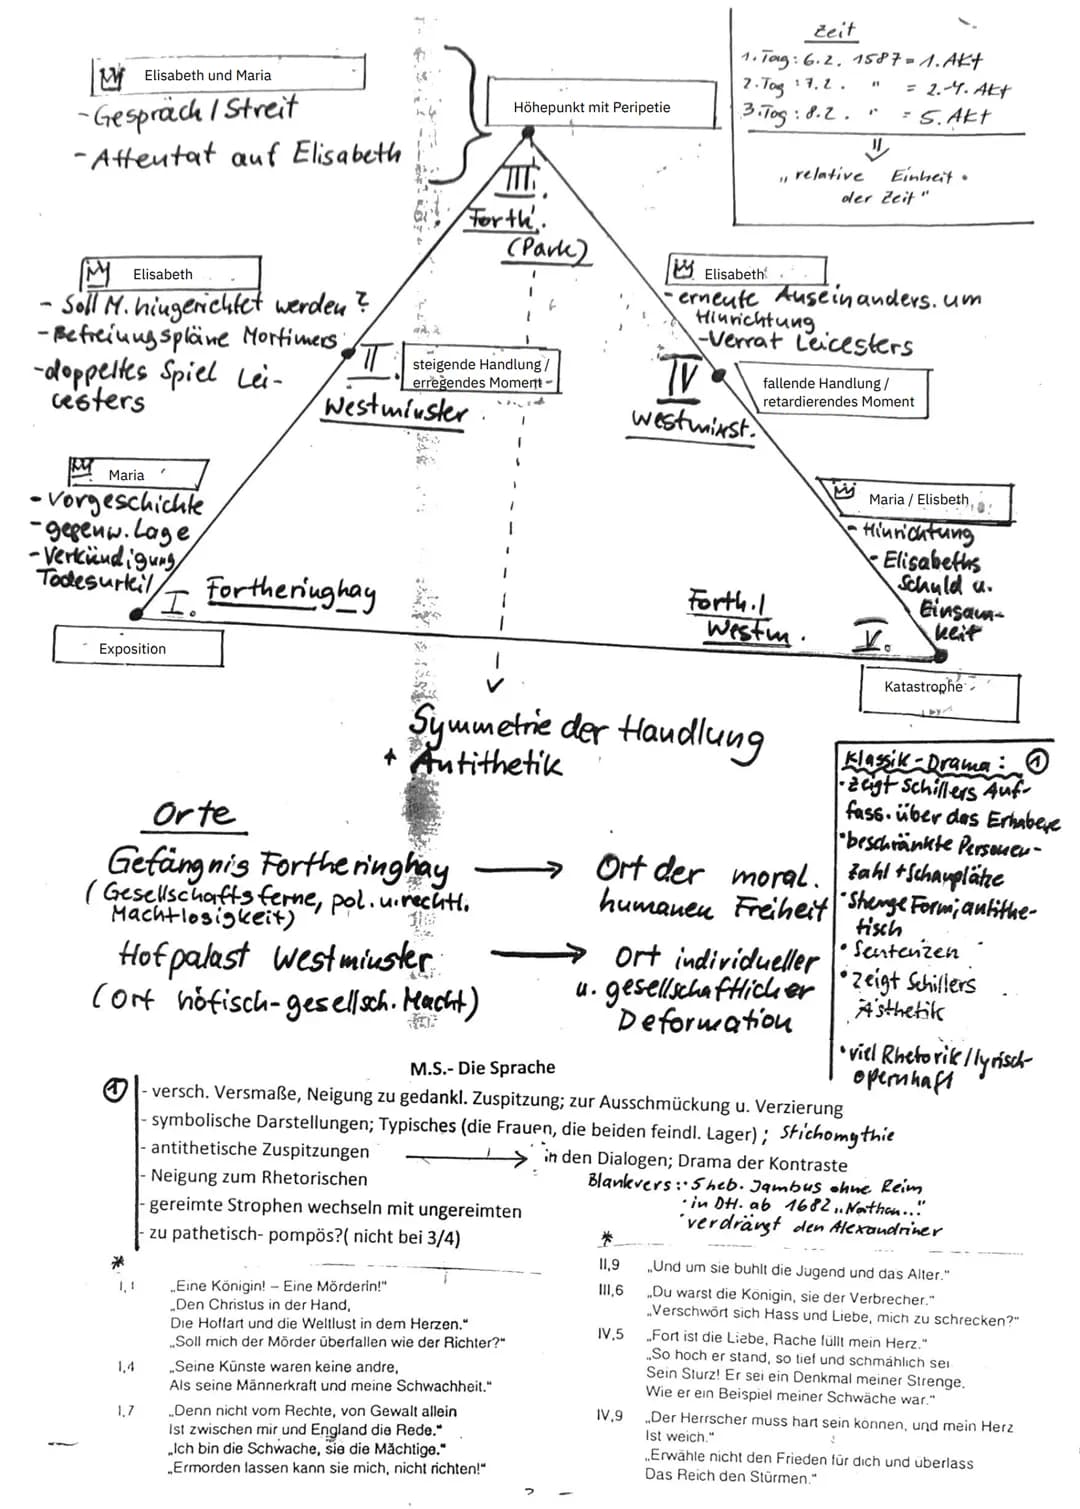 Elisabeth und Maria
- Gespräch / Streit
- Attentat auf Elisabeth
Höhepunkt mit Peripetie
Zeit
1. Tag: 6.2. 1587 = 1. Akt
2. Tag : 7.2. " = 2.-4. Akt
3. Tag : 8.2. " = 5. Akt
"relative Einheit
der Zeit"
III.
Forth.
(Park)
Elisabeth
- Soll M. hingerichtet werden?
- Befreiungspläne Mortimers
- doppeltes Spiel Lei-
cesters
II.
Westminster
steigende Handlung /
erregendes Moment
Elisabeth
- erneute Auseinanders. um
Hinrichtung
- Verrat Leicesters
IV
Westminst.
fallende Handlung /
retardierendes Moment
Maria
- Vorgeschichte
- gegenw. Lage
- Verkündigung
Todesurteil
I. Fortheringhay
Exposition
Maria / Elisbeth
- Hinrichtung
- Elisabeths
Schuld u.
Einsam-
keit
Forth. /
Westm.
V.
Katastrophe
Symmetrie der Handlung
+ Antithetik
Orte
Gefängnis Fortheringhay → Ort der moral.
humanen Freiheit
(Gesellschaftsferne, pol. u. rechtl.
Machtlosigkeit)
Hofpalast Westminster → Ort individueller
u. gesellschaftlicher
Deformation
(Ort höfisch-gesellsch. Macht)
Klassik-Drama: 1
• zeigt Schillers Auf-
fass. über das Erhabene
• beschränkte Personen-
zahl + Schauplätze
• Strenge Form; antithe-
tisch
• Sentenzen
• zeigt Schillers
Ästhetik
• viel Rhetorik / lyrisch-
opernhaft
M.S.- Die Sprache
1
- versch. Versmaße, Neigung zu gedankl. Zuspitzung; zur Ausschmückung u. Verzierung
- symbolische Darstellungen; Typisches (die Frauen, die beiden feindl. Lager) ; Stichomythie
- antithetische Zuspitzungen → in den Dialogen; Drama der Kontraste
- Neigung zum Rhetorischen
- gereimte Strophen wechseln mit ungereimten
- zu pathetisch- pompös?( nicht bei 3/4)
Blankvers: • 5 heb. Jambus ohne Reim
• in Dtl. ab 1682 „Nathan..."
• verdrängt den Alexandriner
*
I,1 „Eine Königin! – Eine Mörderin!"
„Den Christus in der Hand,
Die Hoffart und die Weltlust in dem Herzen."
„Soll mich der Mörder überfallen wie der Richter?"
I,4 „Seine Künste waren keine andre,
Als seine Männerkraft und meine Schwachheit."
I,7 „Denn nicht vom Rechte, von Gewalt allein
Ist zwischen mir und England die Rede."
„Ich bin die Schwache, sie die Mächtige."
„Ermorden lassen kann sie mich, nicht richten!"
*
II,9 „Und um sie buhlt die Jugend und das Alter."
III,6 „Du warst die Königin, sie der Verbrecher."
„Verschwört sich Hass und Liebe, mich zu schrecken?"
IV,5 „Fort ist die Liebe, Rache füllt mein Herz."
„So hoch er stand, so tief und schmählich sei
Sein Sturz! Er sei ein Denkmal meiner Strenge,
Wie er ein Beispiel meiner Schwäche war."
IV,9 „Der Herrscher muss hart sein können, und mein Herz
Ist weich."
„Erwähle nicht den Frieden für dich und überlass
Das Reich den Stürmen."